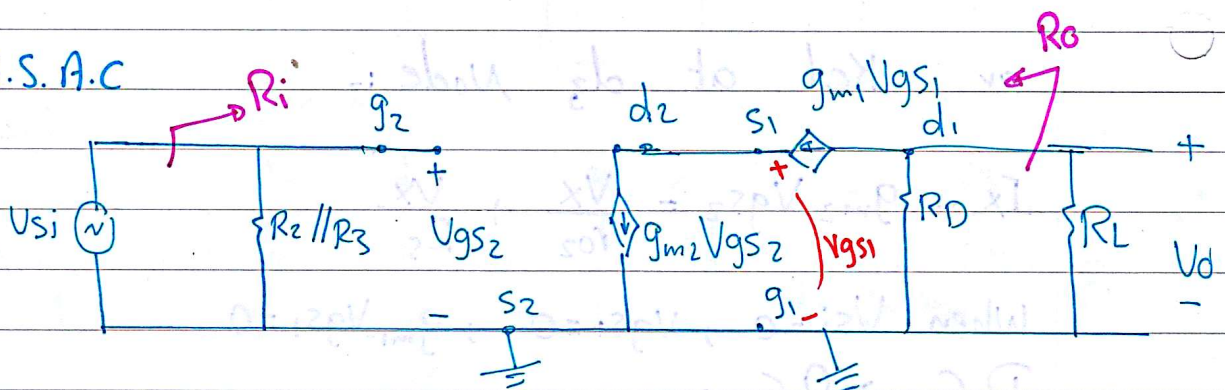 .S.A.C
Ri
Ro
g2
d2
S1
gm1 Vgs1
d1
+
+
+
Vsi
~
R2//R3
Vgs2
gm2Vgs2
Vgs1
RD
RL
Vd
-
-
S2
g1
-